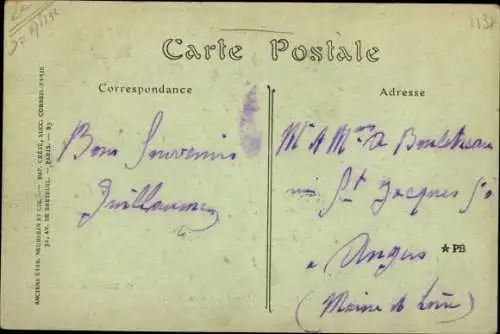 Carte Postale
Correspondance
Adresse
Bons Souvenirs
Guillaume
Mr & Mme
St Jacques
à Angers
(Maine & Loire)
★PB
ANCIENS ÉTAB. NEURDEIN ET CIE. — IMP. CRÉTÉ, SUCC. CORBEIL-PARIS
52, AV. DE BRETEUIL. — PARIS.